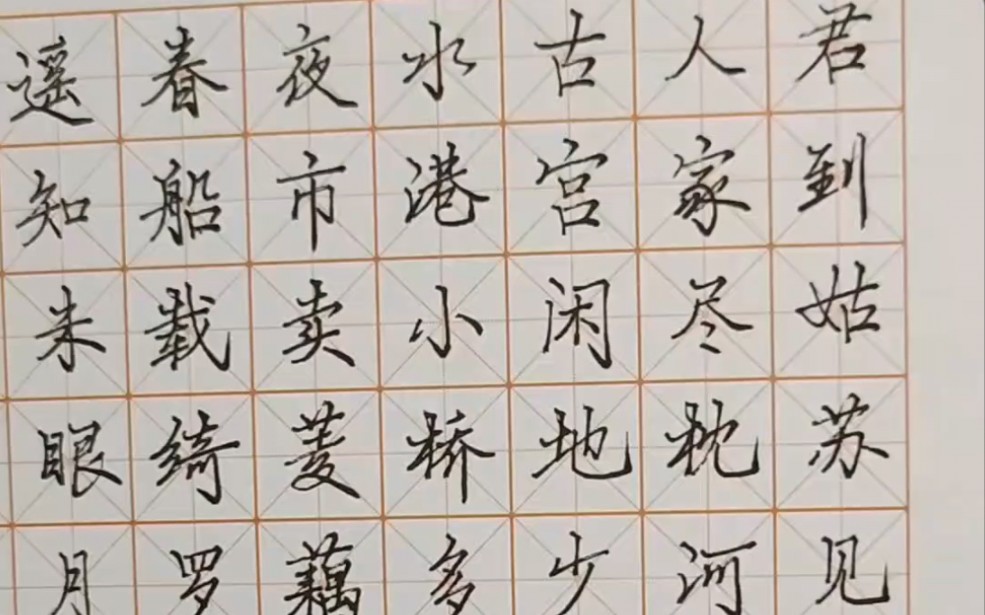 君到姑苏见
人家尽枕河
古宫闲地少
水港小桥多
夜市卖菱藕
春船载绮罗
遥知未眠月